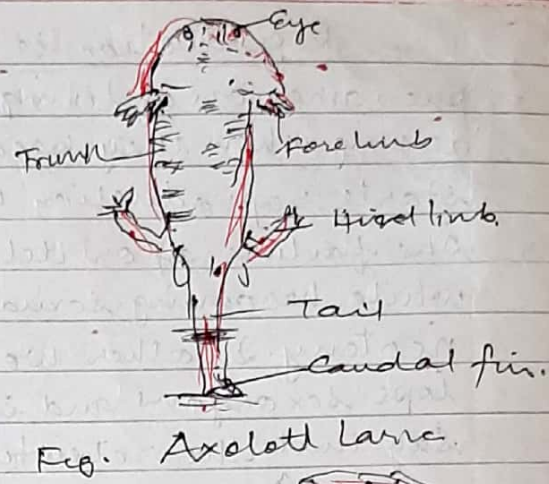 Eye
Trunk
Fore limb
Hind limb.
Tail
Caudal fin.
Fig. Axolotl Larva